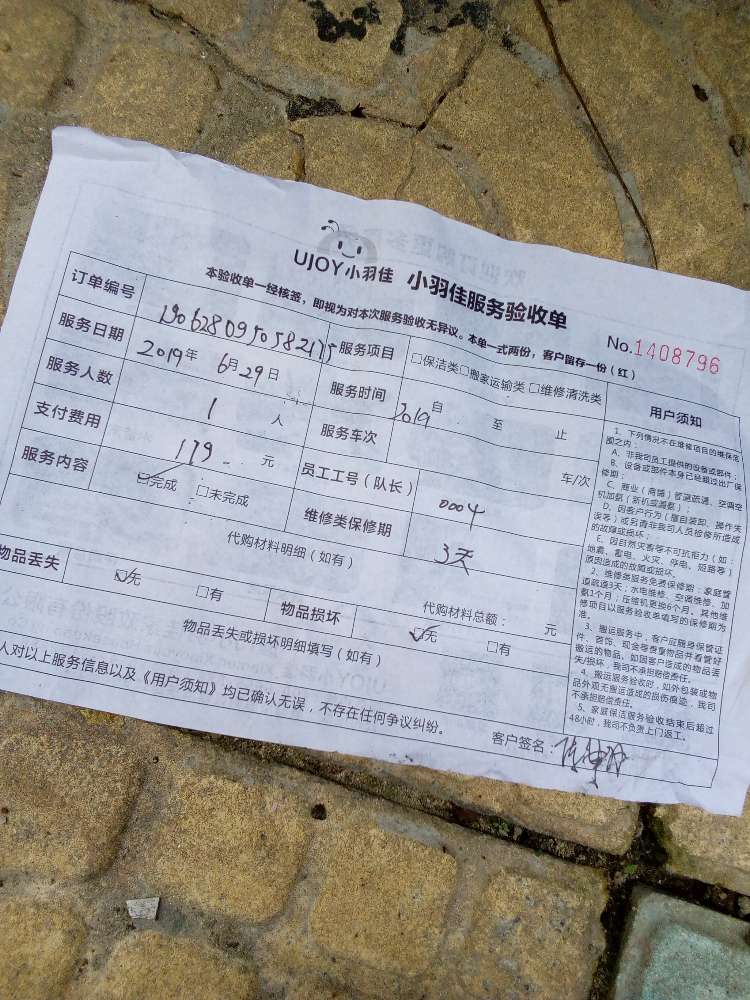 UJOY小羽佳 小羽佳服务验收单
本验收单一经核签，即视为对本次服务验收无异议。本单一式两份，客户留存一份（红）
No.1408796
订单编号 服务项目 □保洁类□搬家运输类 □维修清洗类
服务日期 2019年 6月29日 服务时间 2019 自 至 止
服务人数 1 人 服务车次 车/次
支付费用 119 元 员工工号（队长） 0004
服务内容 ☑完成 □未完成 维修类保修期 3天
代购材料明细（如有）
代购材料总额： 元
物品丢失 ☑无 □有 物品损坏 ☑无 □有
物品丢失或损坏明细填写（如有）
人对以上服务信息以及《用户须知》均已确认无误，不存在任何争议纠纷。
客户签名：
用户须知
1、下列情况不在维修项目的维保范
围之内：
A、非我司员工提供的设备或部件；
B、设备或部件本身已经超过出厂保
修期；
C、商业（商铺）管道疏通、空调空
机加氨（新机或漏氨）；
D、因客户行为（擅自装卸、操作失
误等）或另请非我司人员检修所造成
的故障或损坏；
E、因自然灾害等不可抗拒力（如：
地震、蓄电、火灾、停电、短路等）
原因造成的故障或损坏。
2、维修类服务免费保修期：家庭管
道疏通3天；水电维修、空调维修、加
氨1个月；压缩机更换6个月。其他维
修项目以服务验收单填写的保修期为
准。
3、搬运服务中，客户应随身保管证
件、首饰、现金等贵重物品并看管好
搬运的物品。如因客户造成的物品丢
失/损坏，我司不承担赔偿责任。
4、搬运服务验收时，如外包装或物
品外观无搬运造成的损伤痕迹，我司
不承担赔偿责任。
5、家庭保洁服务验收结束后超过
48小时，我司不负责上门返工。